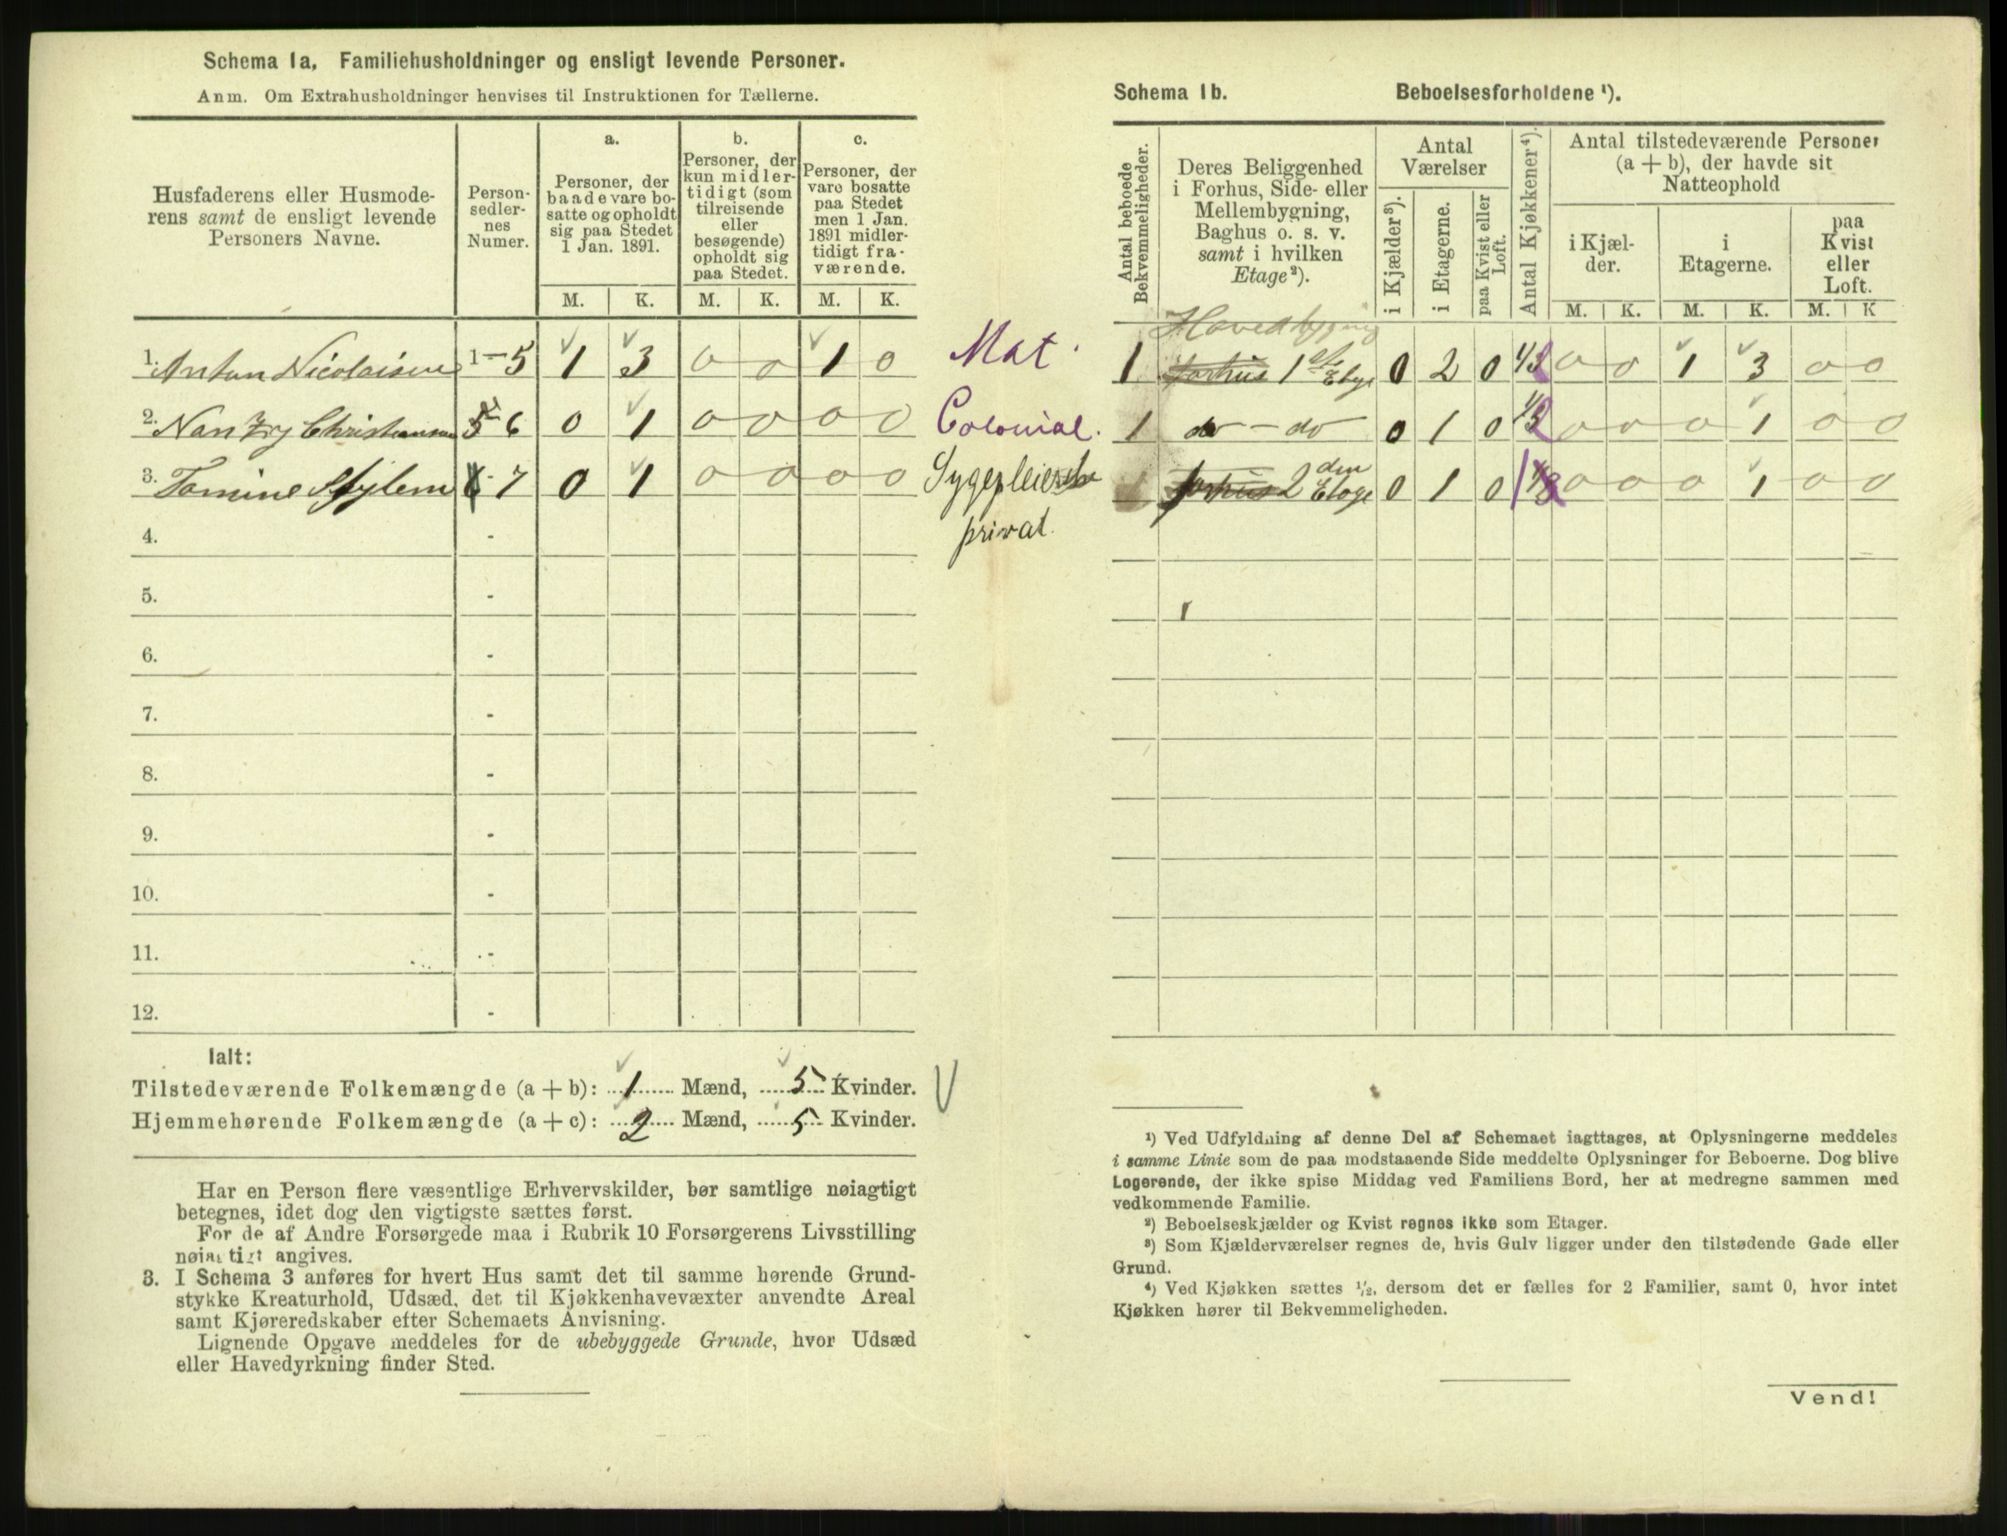 Schema 1a. Familiehusholdninger og ensligt levende Personer.
Anm. Om Extrahusholdninger henvises til Instruktionen for Tællerne.
Husfaderens eller Husmoderens samt de ensligt levende Personers Navne.
Personsedlernes Numer.
a. Personer, der baade vare bosatte og opholdt sig paa Stedet 1 Jan. 1891.
b. Personer, der kun midlertidigt (som tilreisende eller besøgende) opholdt sig paa Stedet.
c. Personer, der vare bosatte paa Stedet men 1 Jan. 1891 midlertidigt fraværende.
M. K. M. K. M. K.
1. Anton Nicolaisen 1-5 1 3 0 0 1 0 Mat.
2. Christiansen 6 0 1 0 0 0 0 Colonial.
3. Tomine 7 0 1 0 0 0 0 Sygepleierske
privat.
4. -
5. -
6. -
7. -
8. -
9. -
10. -
11. -
12. -
Ialt:
Tilstedeværende Folkemængde (a + b): 1 Mænd, 5 Kvinder.
Hjemmehørende Folkemængde (a + c): 2 Mænd, 5 Kvinder.
Har en Person flere væsentlige Erhvervskilder, bør samtlige nøiagtigt
betegnes, idet dog den vigtigste sættes først.
For de af Andre Forsørgede maa i Rubrik 10 Forsørgerens Livsstilling
nøiagtigt angives.
3. I Schema 3 anføres for hvert Hus samt det til samme hørende Grund-
stykke Kreaturhold, Udsæd, det til Kjøkkenhavevæxter anvendte Areal
samt Kjøreredskaber efter Schemaets Anvisning.
Lignende Opgave meddeles for de ubebyggede Grunde, hvor Udsæd
eller Havedyrkning finder Sted.
Schema 1b. Beboelsesforholdene ¹).
Antal beboede Bekvemmeligheder.
Deres Beliggenhed i Forhus, Side- eller Mellembygning, Baghus o. s. v. samt i hvilken Etage ²).
Antal Værelser
i Kjælder ³).
i Etagerne.
paa Kvist eller Loft.
Antal Kjøkkener ⁴).
Antal tilstedeværende Personer (a + b), der havde sit Natteophold
i Kjælder.
i Etagerne.
paa Kvist eller Loft.
M. K. M. K. M. K
Hovedbygning
1 Forhus 1ste Etage 0 2 0 0 0 1 3 0 0
1 do - do 0 1 0 0 0 0 1 0 0
1 Forhus 2den Etage 0 1 0 0 0 0 1 0 0
¹) Ved Udfyldning af denne Del af Schemaet iagttages, at Oplysningerne meddeles
i samme Linie som de paa modstaaende Side meddelte Oplysninger for Beboerne. Dog blive
Logerende, der ikke spise Middag ved Familiens Bord, her at medregne sammen med
vedkommende Familie.
²) Beboelseskjælder og Kvist regnes ikke som Etager.
³) Som Kjælderværelser regnes de, hvis Gulv ligger under den tilstødende Gade eller
Grund.
⁴) Ved Kjøkken sættes ½, dersom det er fælles for 2 Familier, samt 0, hvor intet
Kjøkken hører til Bekvemmeligheden.
Vend!